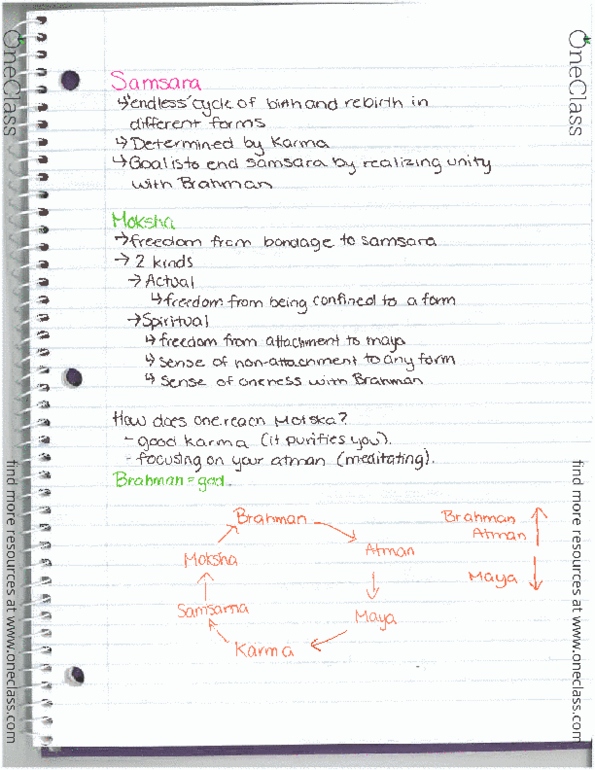 Samsara
↳ "endless" cycle of birth and rebirth in
different forms
↳ Determined by Karma
↳ Goal is to end samsara by realizing unity
with Brahman
Moksha
→ freedom from bondage to samsara
→ 2 kinds
→ Actual
↳ freedom from being confined to a form
→ Spiritual
↳ freedom from attachment to maya
↳ sense of non-attachment to any form
↳ sense of oneness with Brahman
How does one reach Motska?
- good karma (it purifies you).
- focusing on your atman (meditating).
Brahman = god.
Brahman → Atman → Maya → Karma → Samsarna → Moksha →
Brahman ↑
Atman
Maya ↓
OneClass
OneClass
find more resources at www.oneclass.com
find more resources at www.oneclass.com